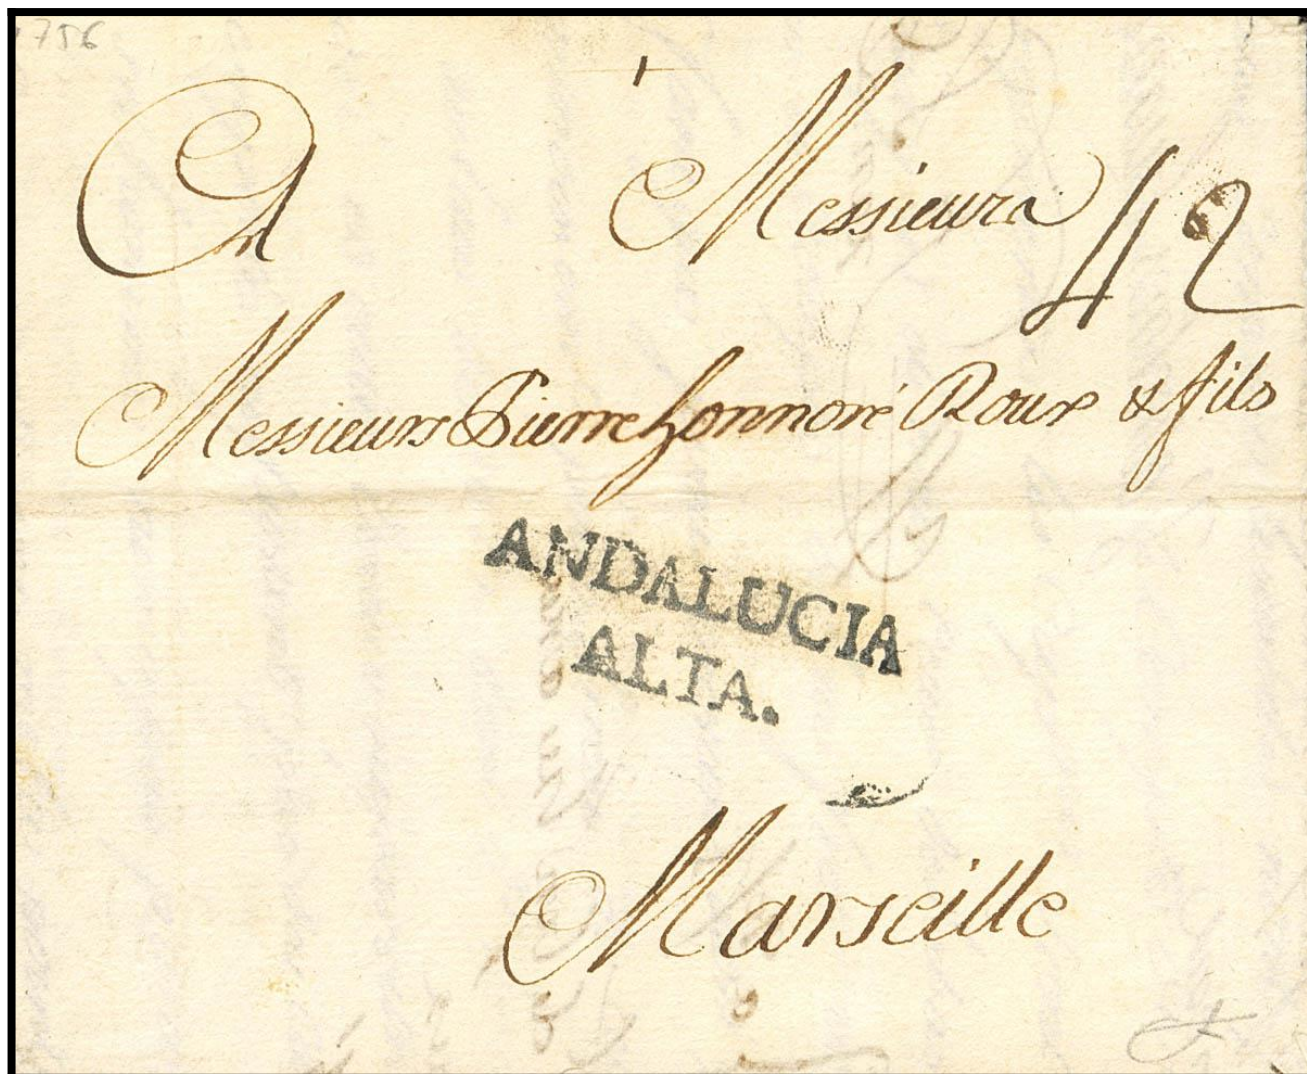 1756
A Messieurs
42
Messieurs Pierre honnoré Roux & fils
ANDALUCIA
ALTA.
Marseille